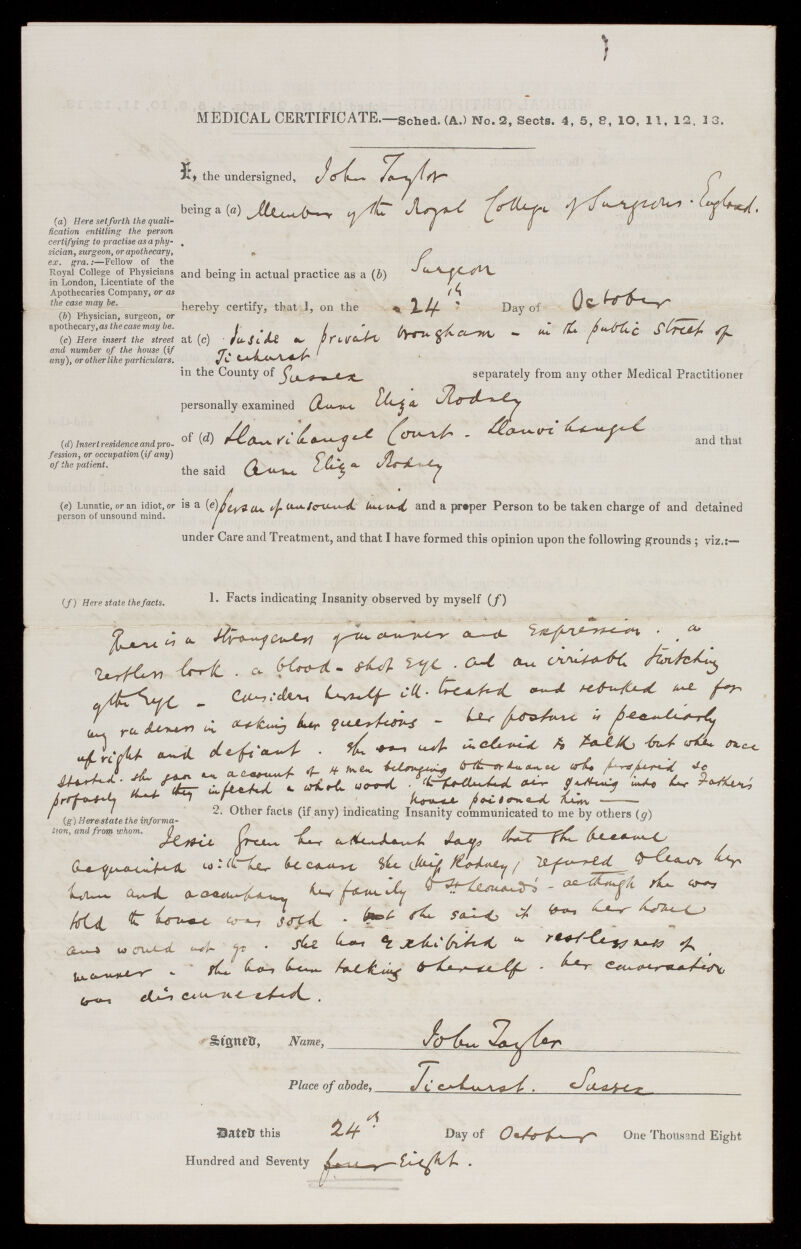 MEDICAL CERTIFICATE.—Sched. (A.) No. 2, Sects. 4, 5, 8, 10, 11, 12, 13.
I, the undersigned, John Taylor
being a (a) Member of the Royal College of Surgeons. England.
(a) Here set forth the quali-
fication entitling the person
certifying to practise as a phy-
sician, surgeon, or apothecary,
ex. gra.:—Fellow of the
Royal College of Physicians
in London, Licentiate of the
Apothecaries Company, or as
the case may be.
and being in actual practice as a (b) Surgeon
(b) Physician, surgeon, or
apothecary, as the case may be.
hereby certify, that I, on the 24th Day of October
(c) Here insert the street
and number of the house (if
any), or other like particulars.
at (c) Inside a private brougham – in the public street of
Ticehurst
in the County of Sussex separately from any other Medical Practitioner
personally examined Anne Eliza Rodney
(d) Insert residence and pro-
fession, or occupation (if any)
of the patient.
of (d) Llanvihangel Court - Llanvihangel and that
the said Anne Eliza Rodney
(e) Lunatic, or an idiot, or
person of unsound mind.
is a (e) person of unsound mind and a proper Person to be taken charge of and detained
under Care and Treatment, and that I have formed this opinion upon the following grounds; viz.:—
(f) Here state the facts.
1. Facts indicating Insanity observed by myself (f)
There is a strangeness of manner and expression. a
restless look. a blood-shot eye. and an irritable twitching
of the eye – considers herself ill-treated and rebuked me for
my rudeness in asking her questions – her posture is peculiarly
upright and defiant. She was not inclined to talk but when once
started. she gave an account of 4 men belonging to the ordnance who so
profusely that they infected a whole wood. the polluted air getting into her Father's
house poisoned him —
2. Other facts (if any) indicating Insanity communicated to me by others (g)
(g) Here state the informa-
tion, and from whom.
Jessie Green her attendant says that she became
acquainted with her because she (Miss Rodney) refused to leave her
home and accompany her family to St Leonard's - although she was
told the house was sold. but she said it was her house
and would not go. She has exhibited a restlessness of
manner. She has been talking to herself. her conversation
was disconnected.
Signed, Name, John Taylor
Place of abode, Ticehurst. Sussex
Dated this 24th Day of October One Thousand Eight
Hundred and Seventy four Eight.